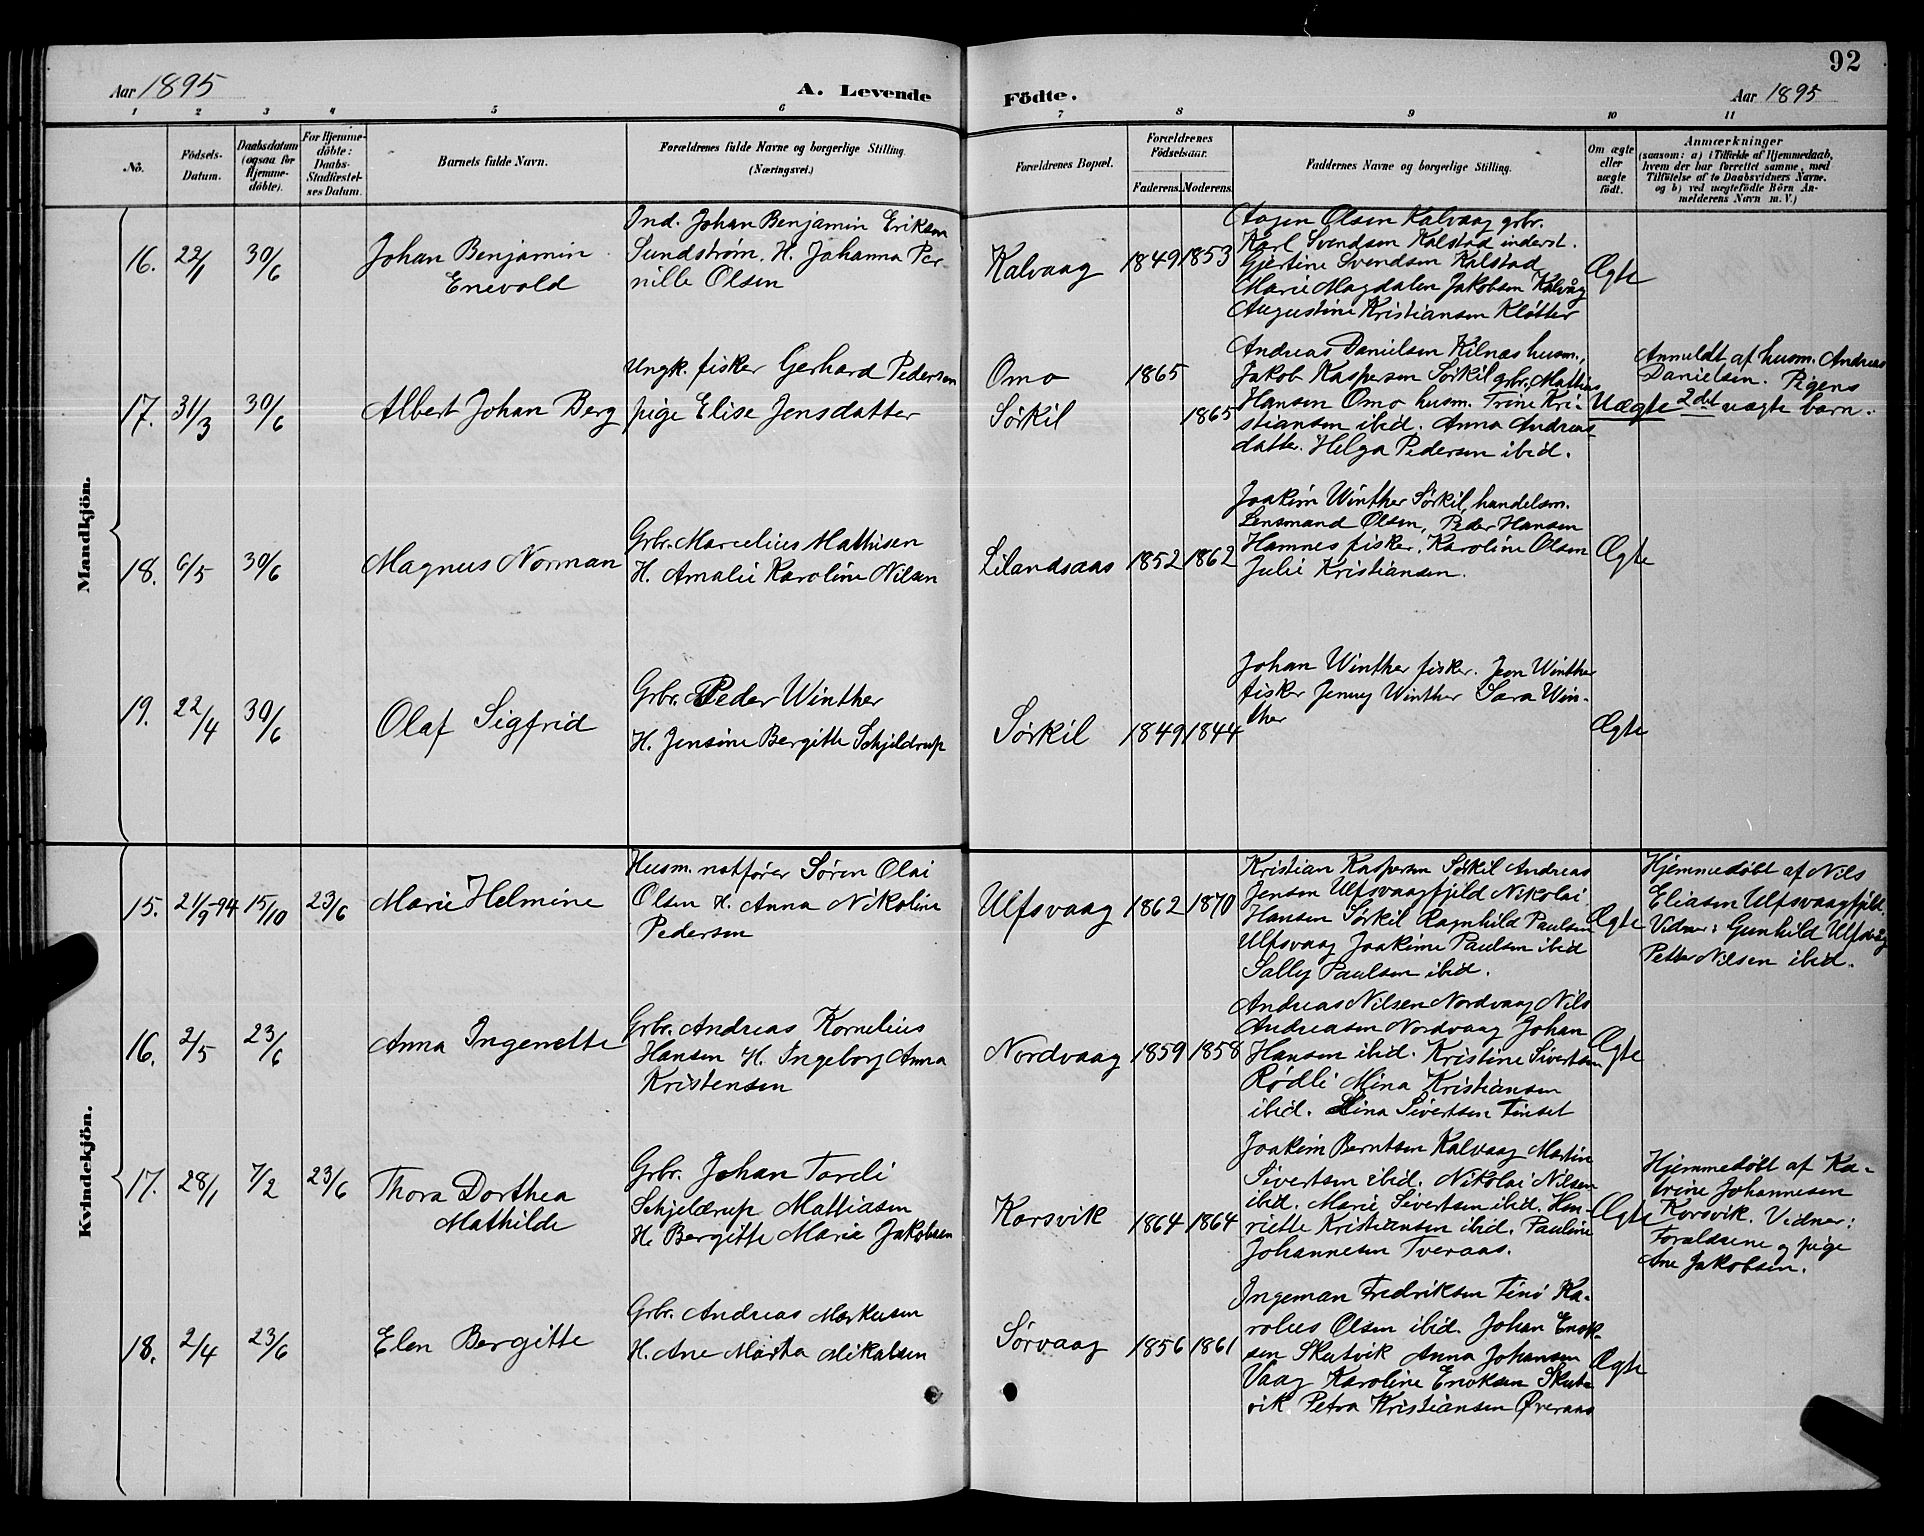 92
Aar 1895 A. Levende Födte. Aar 1895
1 2 3 4 5 6 7 8 9 10 11
No.
Födsels-Datum.
Daabsdatum (ogsaa for Hjemme-döbte).
For Hjemme-döbte: Daabs-Stadfæstel-ses Datum.
Barnets fulde Navn.
Forældrenes fulde Navne og borgerlige Stilling. (Næringsvei.)
Forældrenes Bopæl.
Forældrenes Födselsaar.
Faderens. Moderens.
Faddernes Navne og borgerlige Stilling.
Om ægte eller uægte födt.
Anmærkninger
(saasom: a) i Tilfælde af Hjemmedaab,
hvem der har forrettet samme, med
Tilföielse af to Daabsvidners Navne.
og b) ved uægtefödte Börn An-
melderens Navn m. V.)
Mandkjön.
16. 22/1 30/6
Johan Benjamin
Enevold
Ind. Johan Benjamin Eriksen
Sundstrøm. H. Johanna Per-
nille Olsen
Kalvaag 1849 1853
Olsen Kalvaag grbr.
Karl Svendsen Kalstad inderst.
Gjertine Svendsen Kalstad
Marie Magdalen Jakobsen Kalvåg
Augustine Kristiansen Kløtter
Ægte
17. 31/3 30/6
Albert Johan Berg
Ungk. fisker Gerhard Pedersen
pige Elise Jensdatter
Omo 1865
Sørkil 1865
Andreas Danielsen Kilnæs husm.,
Jakob Kaspersen Sørkil grbr. Mathias
Hansen Omo husm. Trine Kri-
stiansen ibid. Anna Andreas-
datter. Helga Pedersen ibid.
Uægte
Anmeldt af husm. Andreas
Danielsen. Pigens
2det uægte barn.
18. 6/5 30/6
Magnus Norman
Grbr. Marcelius Mathisen
H. Amalie Karoline Nilsen
Lilandsaas 1852 1862
Joakim Winther Sørkil, handelsm.
Lensmand Olsen, Peder Hansen
Hamnes fisker. Karoline Olsen
Julie Kristiansen.
Ægte
19. 22/4 30/6
Olaf Sigfrid
Grbr. Peder Winther
H. Jensine Bergitte Schjeldrup
Sørkil 1849 1844
Johan Winther fisker. Jon Winther
fisker Jenny Winther Sara Win-
ther
Ægte
Kvindekjön.
15. 21/9-94 15/10 23/6
Marie Helmine
Husm. notfører Søren Olai
Olsen H. Anna Nikoline
Pedersen
Ulfsvaag 1862 1870
Kristian Kaspersen Sørkil Andreas
Jensen Ulfsvaagfjeld Nikolai
Hansen Sørkil Ragnhild Paulsen
Ulfsvaag Joakime Paulsen ibid
Sally Paulsen ibid.
Ægte
Hjemmedøbt af Nils
Eliasen Ulfsvaagfjeld.
Vidner: Gunhild Ulfsvåg
Petter Nilsen ibid.
16. 2/5 23/6
Anna Ingenette
Grbr. Andreas Kornelius
Hansen H. Ingeborg Anna
Kristensen
Nordvaag 1859 1858
Andreas Nilsen Nordvaag Nils
Andreasen Nordvaag Johan
Hansen ibid. Kristine Sivertsen
Rødli Mina Kristiansen
ibid. Lina Sivertsen Finset
Ægte
17. 28/1 7/2 23/6
Thora Dorthea
Mathilde
Grbr. Johan Tordi
Schjeldrup Mattiasen
H. Bergitte Marie Jakobsen
Korsvik 1864 1864
Joakim Berntsen Kalvaag Martin
Sivertsen ibid. Nikolai Nilsen
ibid. Marie Sivertsen ibid. Hen-
riette Kristiansen ibid. Pauline
Johannesen Tveraas.
Ægte
Hjemmedøbt af Ka-
trine Johannesen
Korsvik. Vidner:
Forældrene og pige
Ane Jakobsen.
18. 2/4 23/6
Elen Bergitte
Grbr. Andreas Markusen
H. Ane Marta Mikalsen
Sørvaag 1856 1861
Ingeman Fredriksen Finø Ka-
rolius Olsen ibid. Johan Enok-
sen Skutvik Anna Johansen
Vaag Karoline Enoksen Skut-
vik Petra Kristiansen Øveraas
Ægte